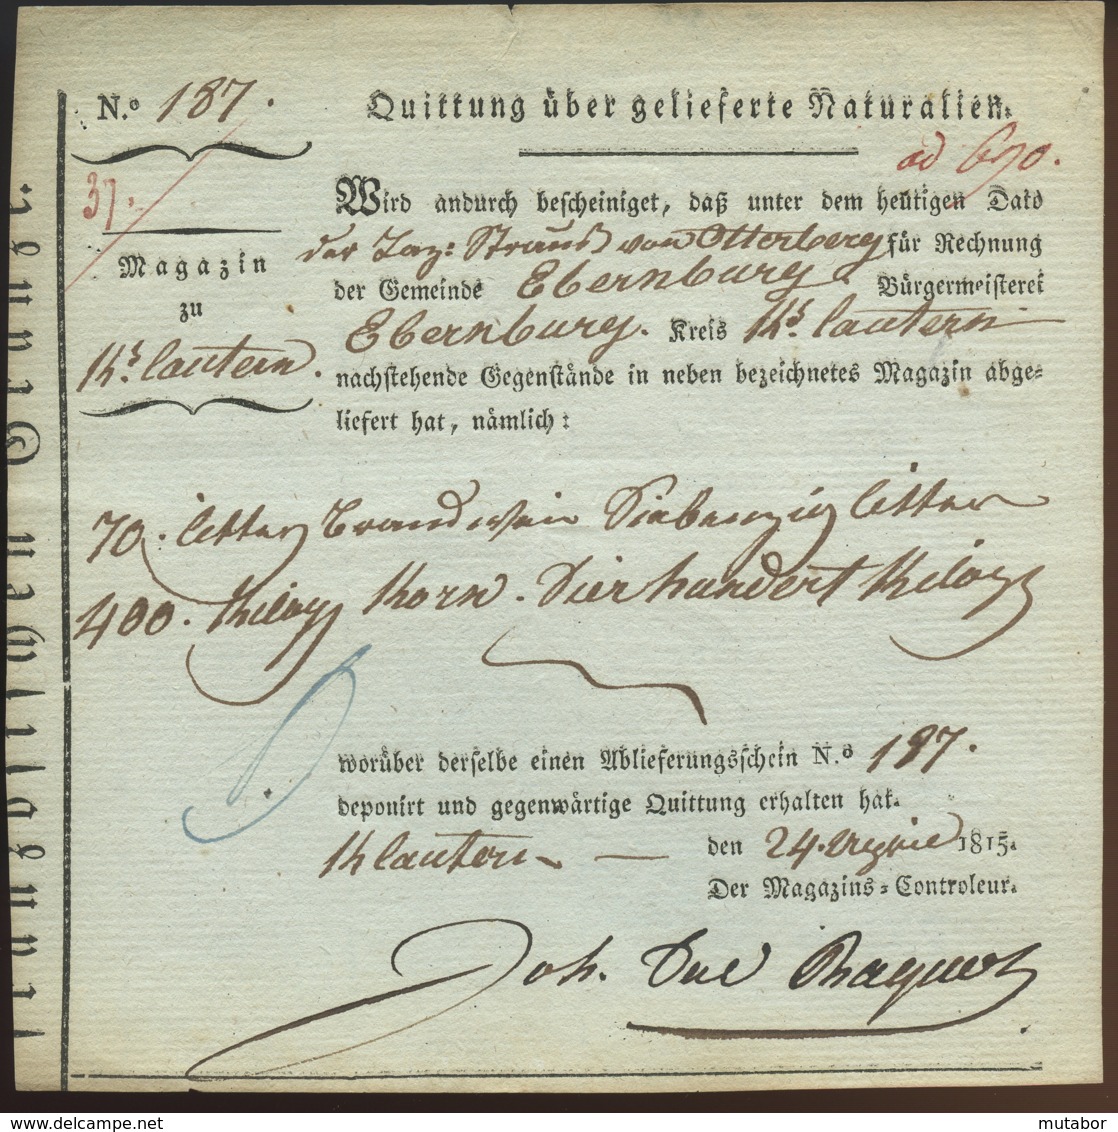 N.º 187.
Quittung über gelieferte Naturalien.
ad 690.
37.
Magazin
zu
Ks lautern.
Wird andurch bescheiniget, daß unter dem heutigen Dato
der Jaz: Straus von Otterberg für Rechnung
der Gemeinde Ebernburg Bürgermeisterei
Ebernburg. Kreis Ks lautern
nachstehende Gegenstände in neben bezeichnetes Magazin abge=
liefert hat, nämlich:
70. litter Brandwein Siebenzig litter
400. Kilog Korn. Vierhundert Kilog
worüber derselbe einen Ablieferungsschein N.º 187.
deponirt und gegenwärtige Quittung erhalten hat.
Klautern den 24. 1815.
Der Magazins=Controleur.
Joh.
mutabor